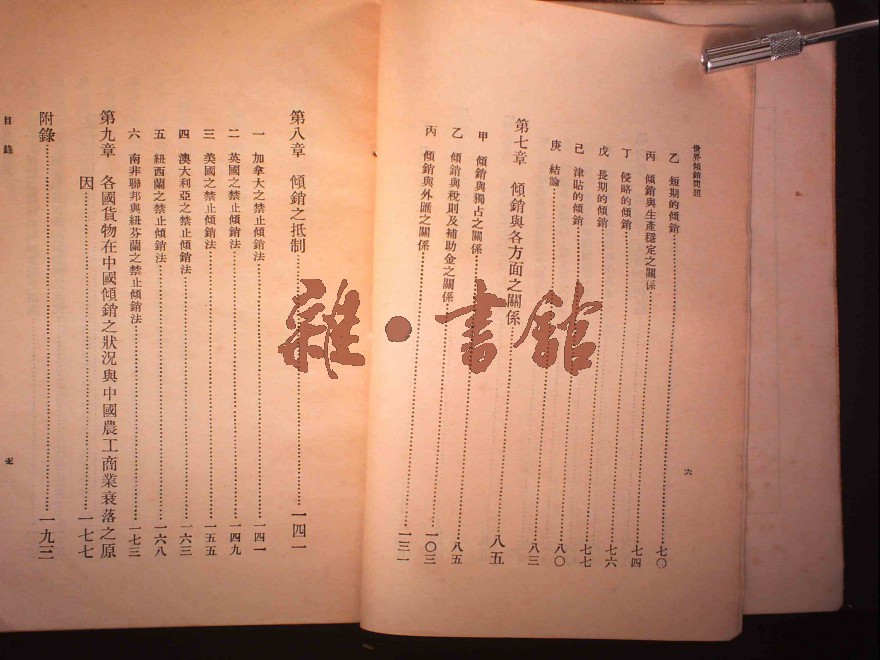 世界傾銷問題
六
乙　短期的傾銷……七〇
丙　傾銷與生產穩定之關係……七四
丁　侵略的傾銷……七六
戊　長期的傾銷……七七
己　津貼的傾銷……八〇
庚　結論……八三
第七章　傾銷與各方面之關係……八五
甲　傾銷與獨占之關係……八五
乙　傾銷與稅則及補助金之關係……一〇三
丙　傾銷與外匯之關係……一三一
第八章　傾銷之抵制……一四一
一　加拿大之禁止傾銷法……一四一
二　英國之禁止傾銷法……一四九
三　美國之禁止傾銷法……一五五
四　澳大利亞之禁止傾銷法……一六三
五　紐西蘭之禁止傾銷法……一六八
六　南非聯邦與紐芬蘭之禁止傾銷法……一七三
第九章　各國貨物在中國傾銷之狀況與中國農工商業衰落之原
因……一七七
附錄……一九三
目錄
七
雜·書館